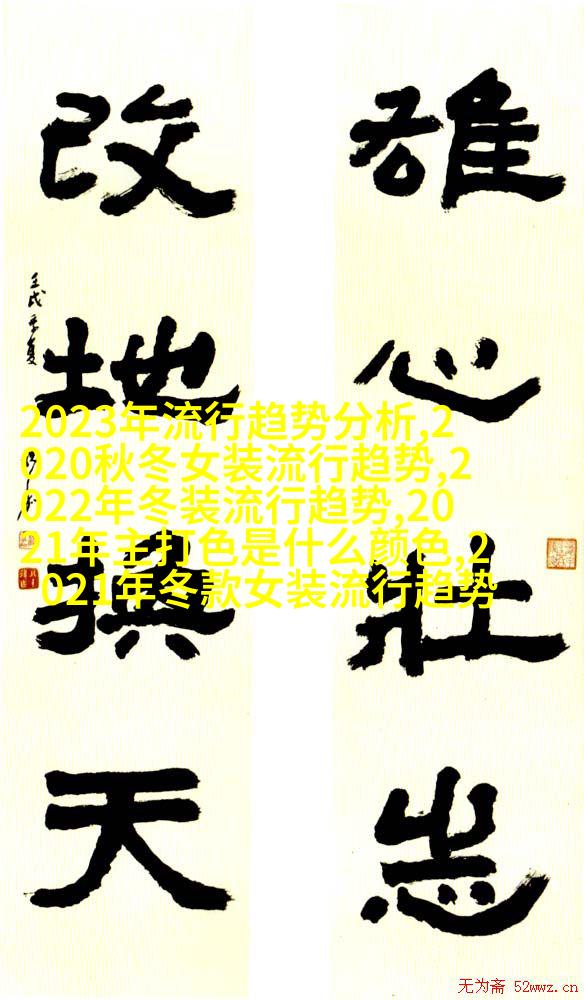 雄心壯志
改地換天
2023年流行趋势分析,2
020秋冬女装流行趋势,2
022年冬装流行趋势,20
21年主打色是什么颜色,2
021年冬款女装流行趋势
无为斋 52wwz.cn